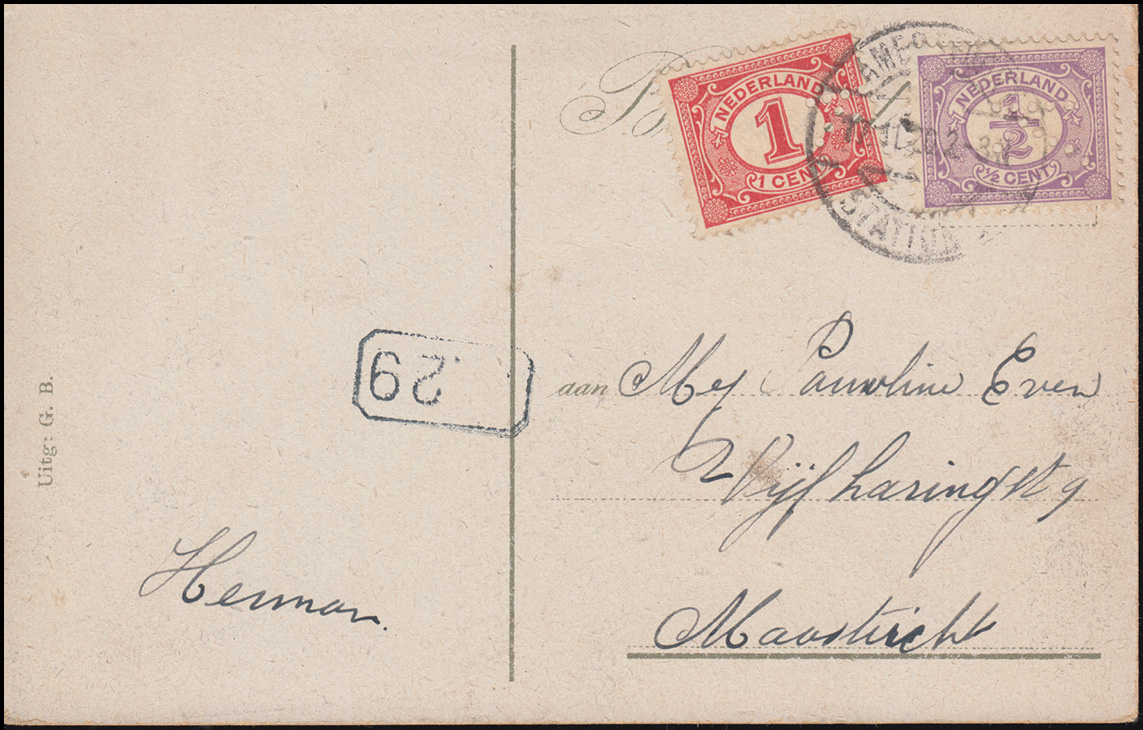 NEDERLAND
1
1 CENT
NEDERLAND
½
½ CENT
STATION
29
aan Mej Pauline Even
Wijfharingst 9
Maastricht
Herman.
Uitg: G. B.